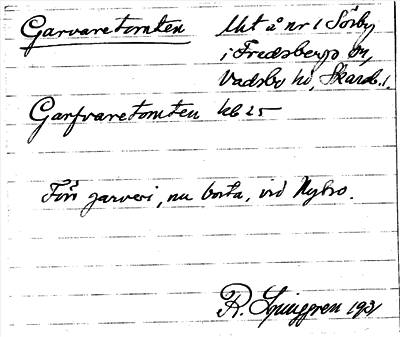 Garvaretomten Uht å nr 1 Sörby
i Fredsbergs sn,
Vadsbo hd, Skarab. l.
Garfvaretomten kb 25
Förr garveri, nu borta, vid Nybro.
R. Ljunggren 1931